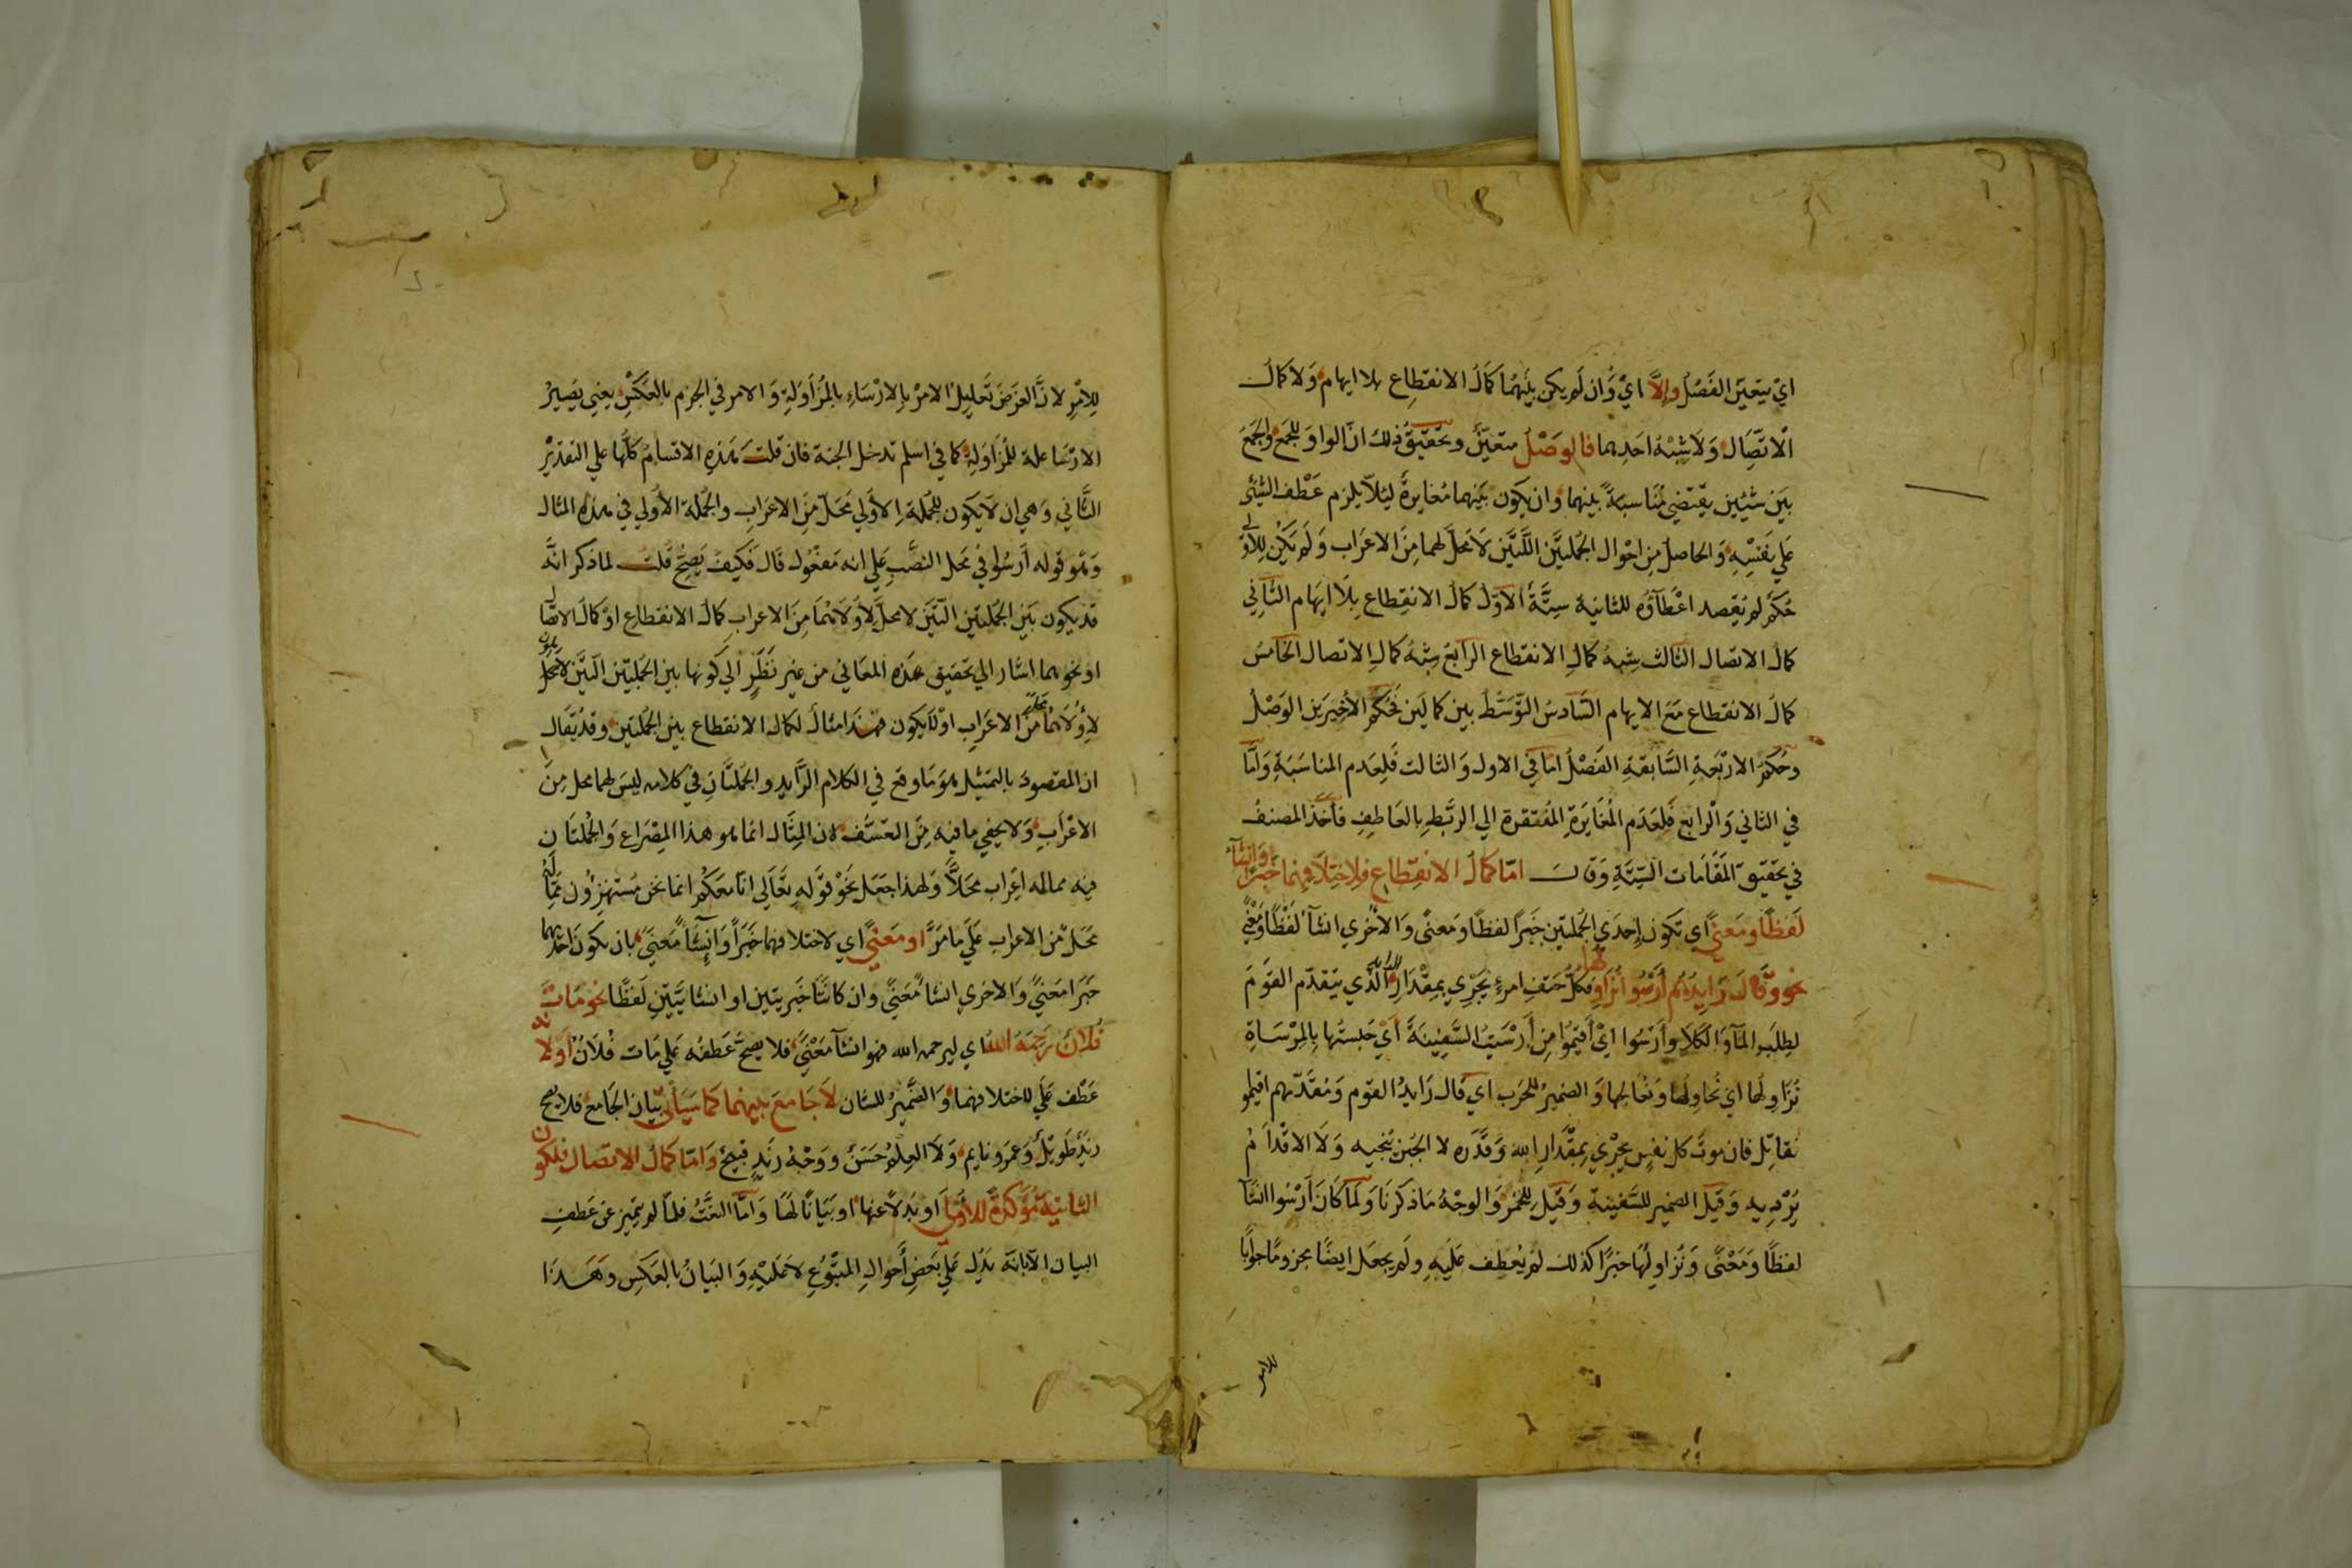 اي يتعين الفصل وإلا اي وان لم يكن بينهما كمال الانقطاع بلا ايهام ولا كمال
الاتصال ولا شبه احدهما فالوصل متعين وتحقيق ذلك ان الواو للجمع والجمع
بين شيئين يقتضي مناسبة بينهما وان يكون بينهما مغايرة ليلا يلزم عطف الشئ
علي نفسه والحاصل من احوال الجملتين اللتين لا محل لهما من الاعراب ولم يكن للاولي
حكم لم يقصد اعطاؤه للثانية ستة الاول كمال الانقطاع بلا ايهام الثاني
كمال الاتصال الثالث شبه كمال الانقطاع الرابع شبه كمال الاتصال الخامس
كمال الانقطاع مع الايهام السادس التوسط بين كمالين فحكم الاخيرين الوصل
وحكم الاربعة السابقة الفصل اما في الاول والثالث فلعدم المناسبة واما
في الثاني والرابع فلعدم المغايرة المفتقرة الي الربط بالعاطف فاخذ المصنف
في تحقيق المقامات الستة وقال اما كمال الانقطاع فلاختلافهما خبرا وانشأ
لفظا ومعني اي تكون احدي الجملتين خبرا لفظا ومعني والاخري انشأ لفظا ومعني
نحو وقال رايدهم أرسوا نزاولها فكل حتف امرء يجري بمقدار الرايد الذي يتقدم القوم
لطلب المآء والكلاء وأرسوا اي أقيموا من أرسيت السفينة أي حبستها بالمرساة
نزاولها اي نحاولها ونعالجها والضمير للحرب اي قال رايد القوم ومقدمهم اقيموا
نقاتل فان موت كل نفس يجري بمقدار الله وقدره لا الجبن ينجيه ولا الاقدام
يرديه وقيل الضمير للسفينة وقيل للخمر والوجه ما ذكرنا ولما كان أرسوا انشآ
لفظا ومعني ونزاولها خبرا كذلك لم يعطف عليه ولم يجعل ايضا مجزوما جوابا
للامر
للامر لان الغرض تعليل الامر بالارساء بالمزاولة والامر في الجزم بالعكس يعني يصير
الارسا علة للمزاولة كما في اسلم تدخل الجنة فان قلت هذه الاقسام كلها علي التقدير
الثاني وهي ان لا يكون للجملة الاولي محل من الاعراب والجملة الاولي في هذه المثال
وهو قوله أرسوا في محل النصب علي انه مفعول قال فكيف يصح قلت لما ذكر انه
قد يكون بين الجملتين اللتين لا محل لاولاهما من الاعراب كمال الانقطاع او كمال الاتصال
او نحوهما اشار الي تحقيق هذه المعاني من غير نظر الي كونها بين الجملتين اللتين لا محل
لاولاهما من الاعراب او لا يكون فهذا مثال لكمال الانقطاع بين الجملتين وقد يقال
ان المقصود بالتمثيل هو ما وقع في الكلام الرايد والجملتان في كلامه ليس لهما محل من
الاعراب ولا يخفي ما فيه من التعسف لان المثال انما هو هذا المصراع والجملتان
فيه مما له اعراب محلا ولهذا جعل نحو قوله تعالي انا معكم انما نحن مستهزؤن مما له
محل من الاعراب علي ما مر او معني اي لاختلافهما خبرا وانشاء معني بان يكون احدهما
خبرا معني والاخري انشا معني وان كانتا خبريتين او انشائيتين لفظا نحو مات
فلان رحمه الله اي ليرحمه الله فهو انشآ معني فلا يصح عطفه علي مات فلان او لانه
عطف علي لاختلافهما والضمير للشان لا جامع بينهما كما سيأتي بيان الجامع فلا يصح
زيد طويل وعمرو نايم ولا العلم حسن ووجه زيد قبيح واما كمال الاتصال فلكون
الثانية مؤكدة للاولي او بدلا عنها او بيانا لها واما النعت فلما لم يتميز عن عطف
البيان الا بانه يدل علي بعض أحوال المتبوع لا عليه والبيان بالعكس وهذا